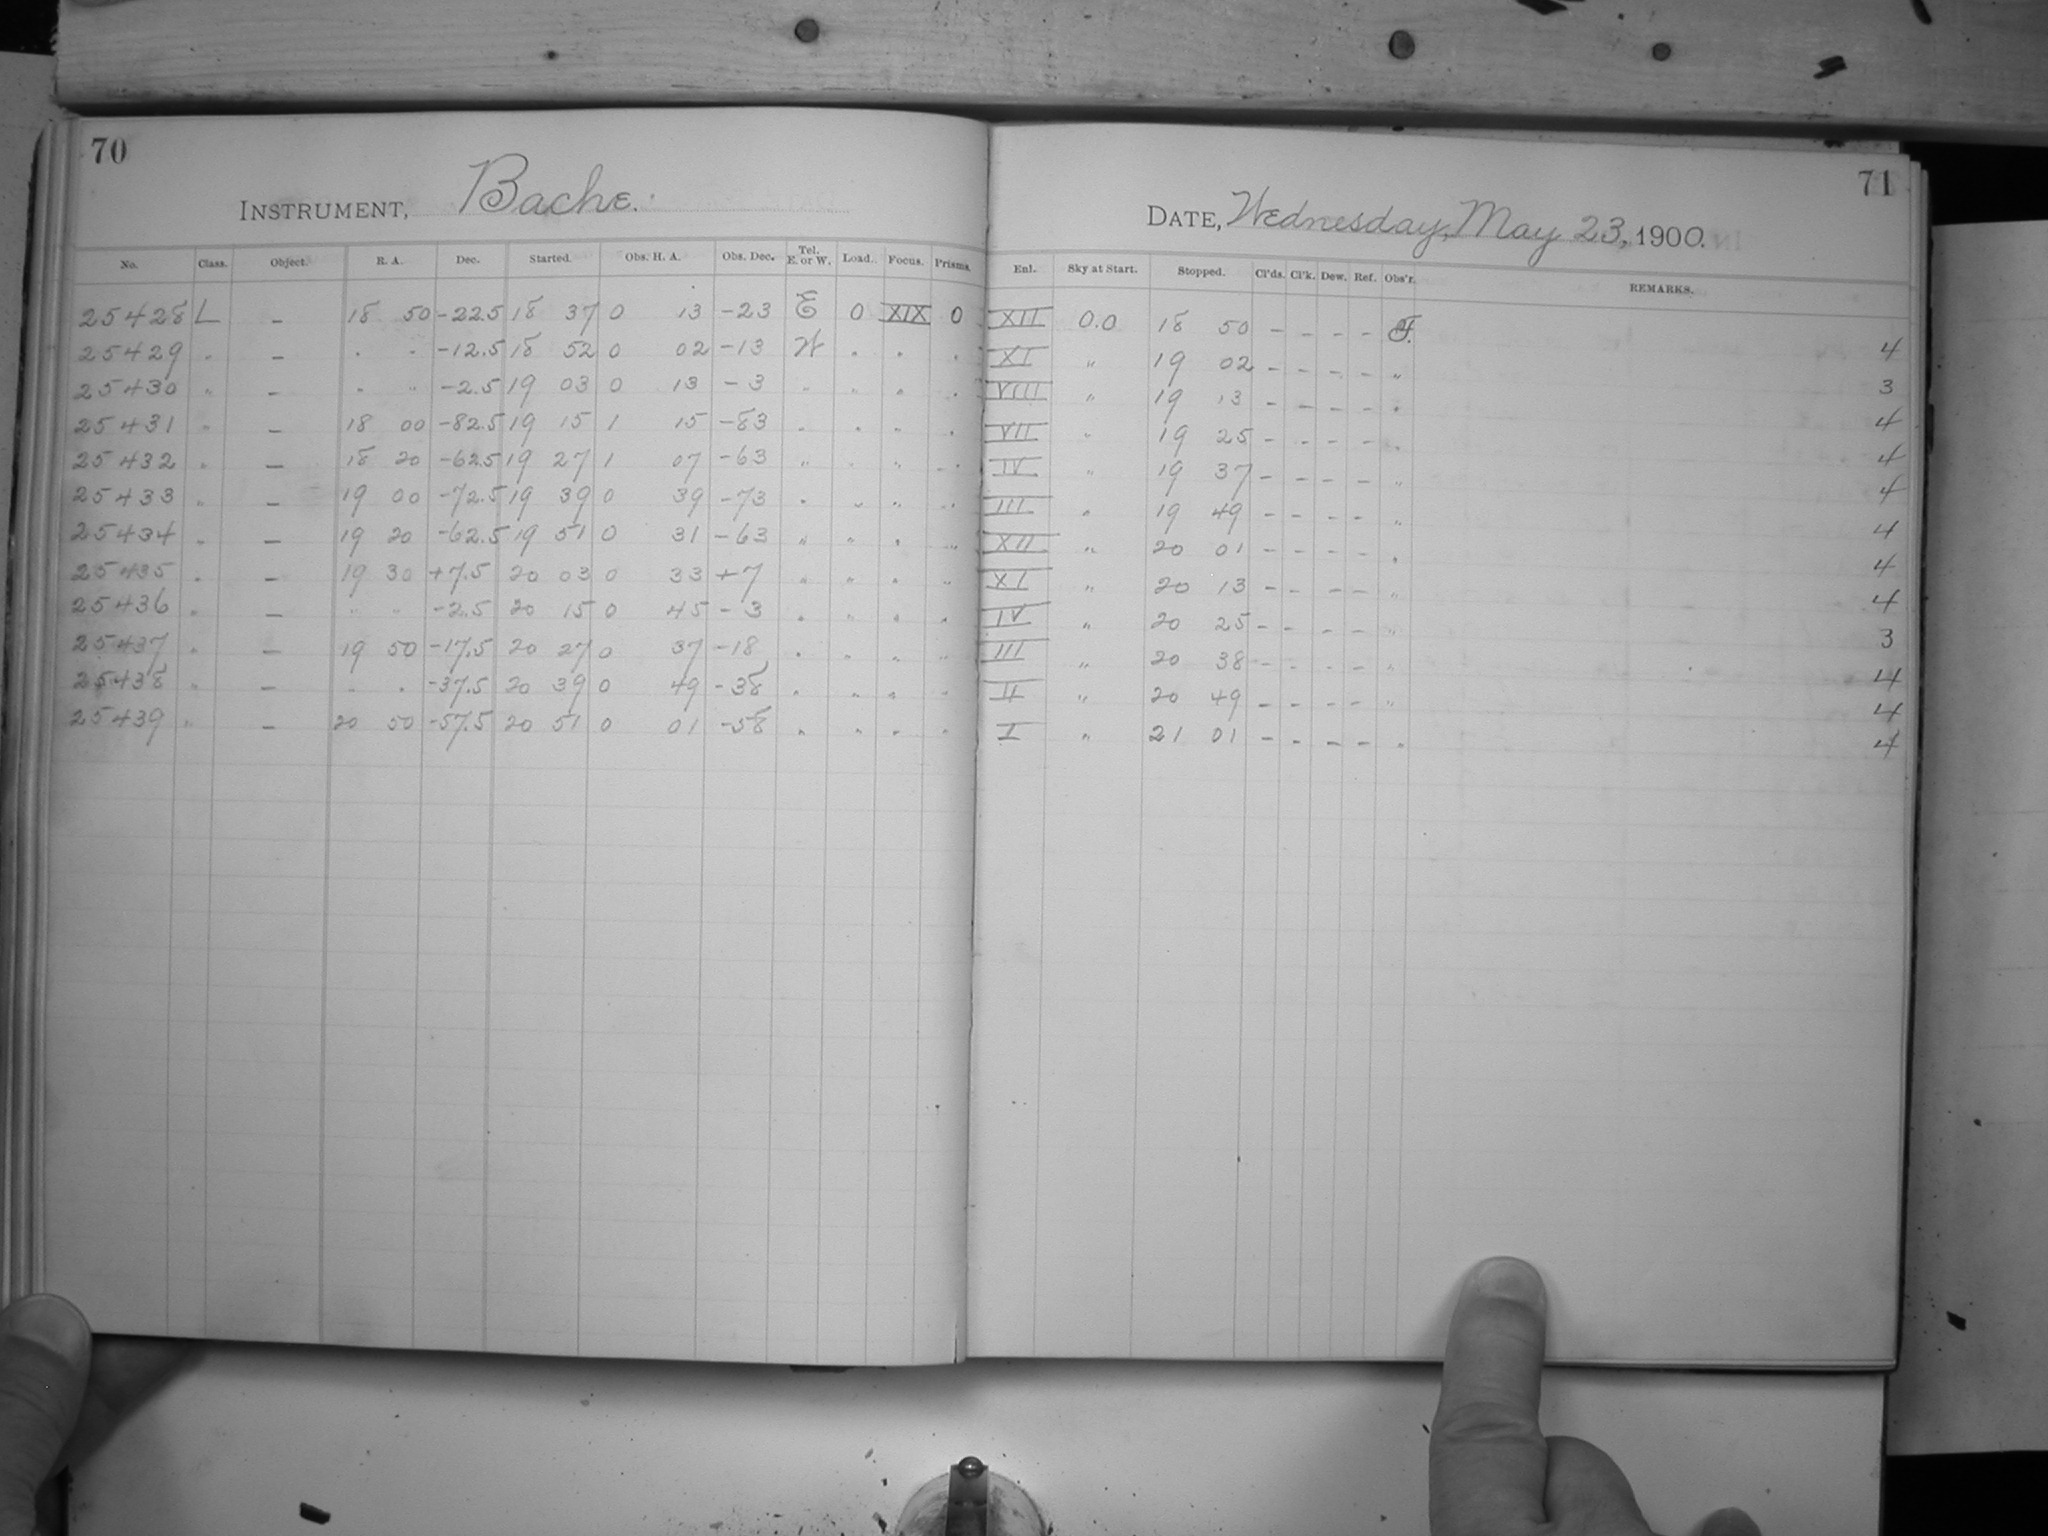 70
INSTRUMENT, Bache.
No. Class. Object. R. A. Dec. Started. Obs. H. A. Obs. Dec. Tel. E. or W. Load. Focus. Prisms.
25428 L – 18 50 -22.5 18 37 0 13 -23 E 0 XIX 0
25429 " – " " -12.5 18 52 0 02 -13 W " " "
25430 " – " " -2.5 19 03 0 13 -3 " " " "
25431 " – 18 00 -82.5 19 15 1 15 -83 " " " "
25432 " – 18 20 -62.5 19 27 1 07 -63 " " " "
25433 " – 19 00 -72.5 19 39 0 39 -73 " " " "
25434 " – 19 20 -62.5 19 51 0 31 -63 " " " "
25435 " – 19 30 +7.5 20 03 0 33 +7 " " " "
25436 " – " " -2.5 20 15 0 45 -3 " " " "
25437 " – 19 50 -17.5 20 27 0 37 -18 " " " "
25438 " – " " -37.5 20 39 0 49 -38 " " " "
25439 " – 20 50 -57.5 20 51 0 01 -58 " " " "
71
DATE, Wednesday, May 23, 1900.
Enl. Sky at Start. Stopped. Cl'ds. Cl'k. Dew. Ref. Obs'r. REMARKS.
XII 0.0 18 50 – – – – F. 4
XI " 19 02 – – – – " 3
VIII " 19 13 – – – – " 4
VII " 19 25 – – – – " 4
IV " 19 37 – – – – " 4
III " 19 49 – – – – " 4
XII " 20 01 – – – – " 4
XI " 20 13 – – – – " 4
IV " 20 25 – – – – " 3
III " 20 38 – – – – " 4
II " 20 49 – – – – " 4
I " 21 01 – – – – " 4